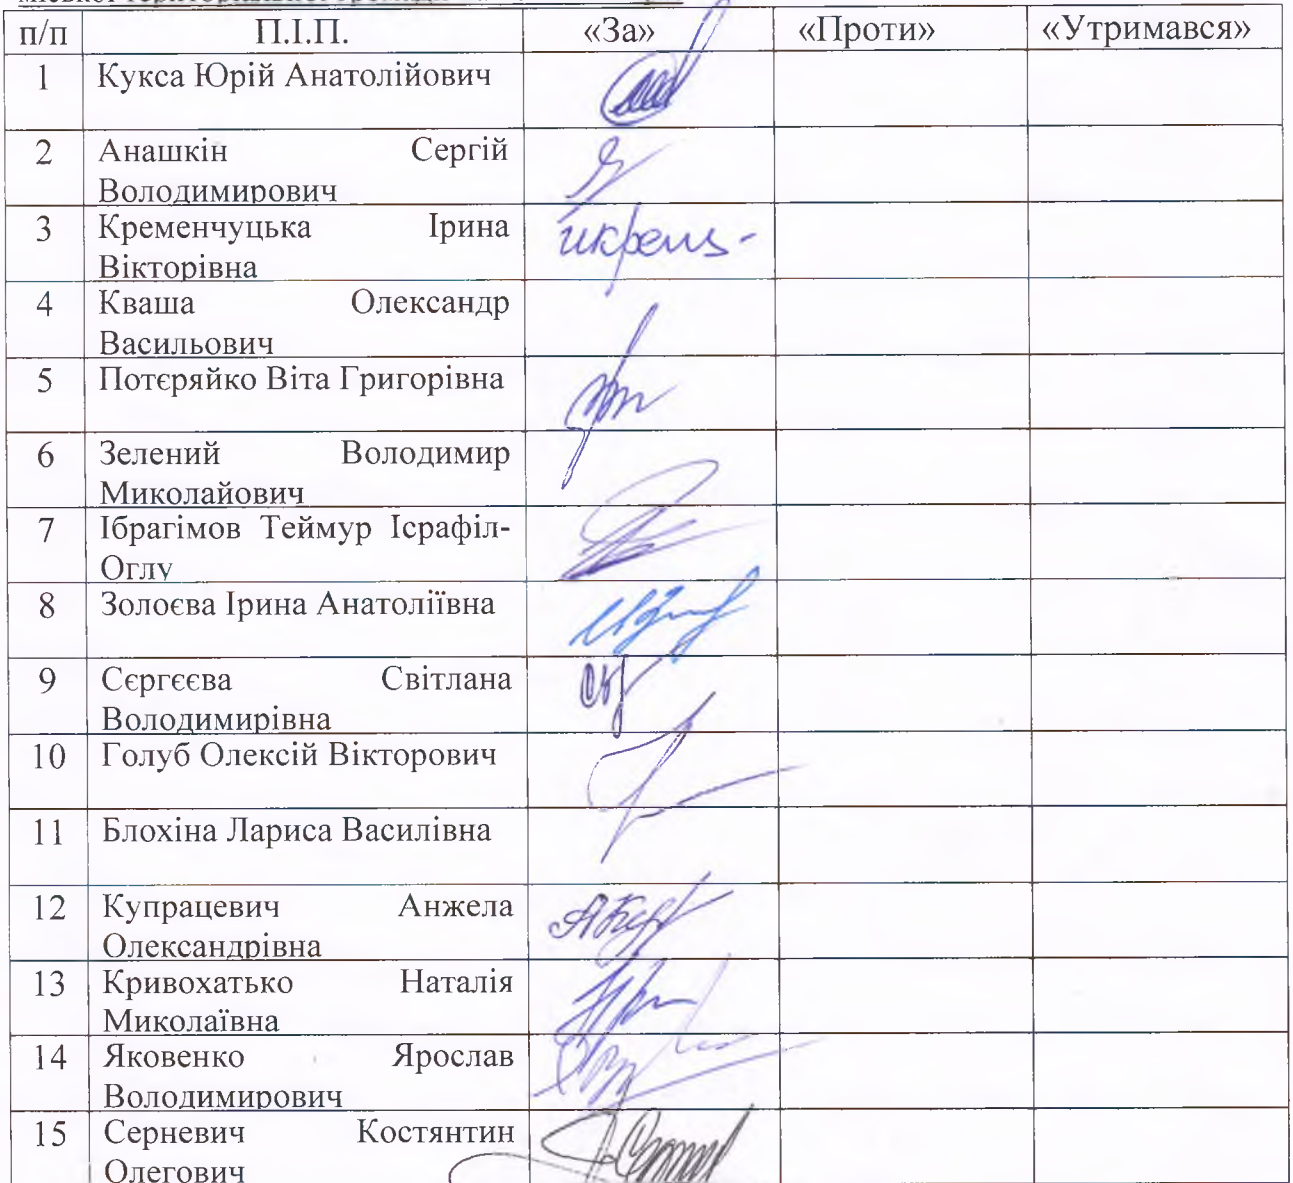 міської територіальної громади
п/п П.І.П. «За» «Проти» «Утримався»
1 Кукса Юрій Анатолійович
2 Анашкін Сергій
Володимирович
3 Кременчуцька Ірина
Вікторівна
4 Кваша Олександр
Васильович
5 Потєряйко Віта Григорівна
6 Зелений Володимир
Миколайович
7 Ібрагімов Теймур Ісрафіл-
Оглу
8 Золоєва Ірина Анатоліївна
9 Сєргєєва Світлана
Володимирівна
10 Голуб Олексій Вікторович
11 Блохіна Лариса Василівна
12 Купрацевич Анжела
Олександрівна
13 Кривохатько Наталія
Миколаївна
14 Яковенко Ярослав
Володимирович
15 Серневич Костянтин
Олегович